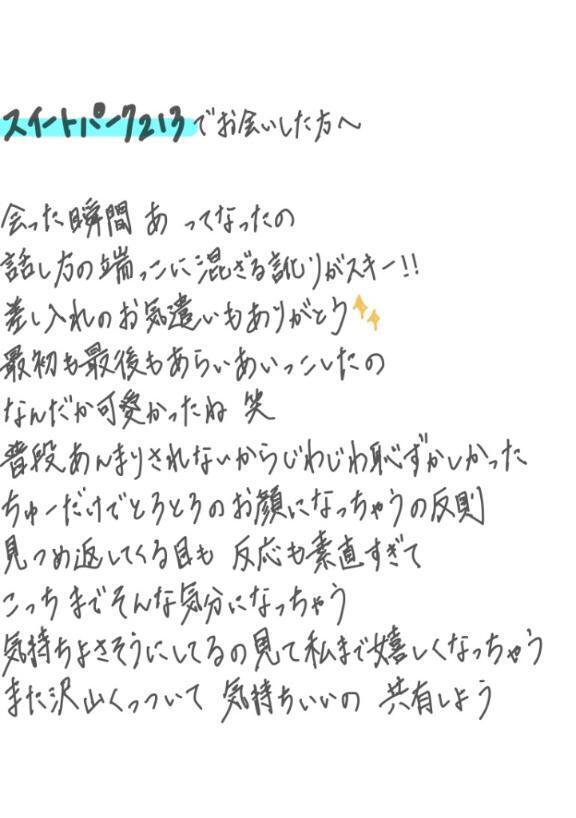 スイートパーク213でお会いした方へ
会った瞬間 あ ってなったの
話し方の端っこに混ざる訛りがスキー!!
差し入れのお気遣いもありがとう
最初も最後もあらいあいっこしたの
なんだか可愛かったね 笑
普段あんまりされないからじわじわ恥ずかしかった
ちゅーだけでとろとろのお顔になっちゃうの反則
見つめ返してくる目も 反応も素直すぎて
こっちまでそんな気分になっちゃう
気持ちよさそうにしてるの見て私まで嬉しくなっちゃう
また沢山くっついて 気持ちいいの 共有しよう